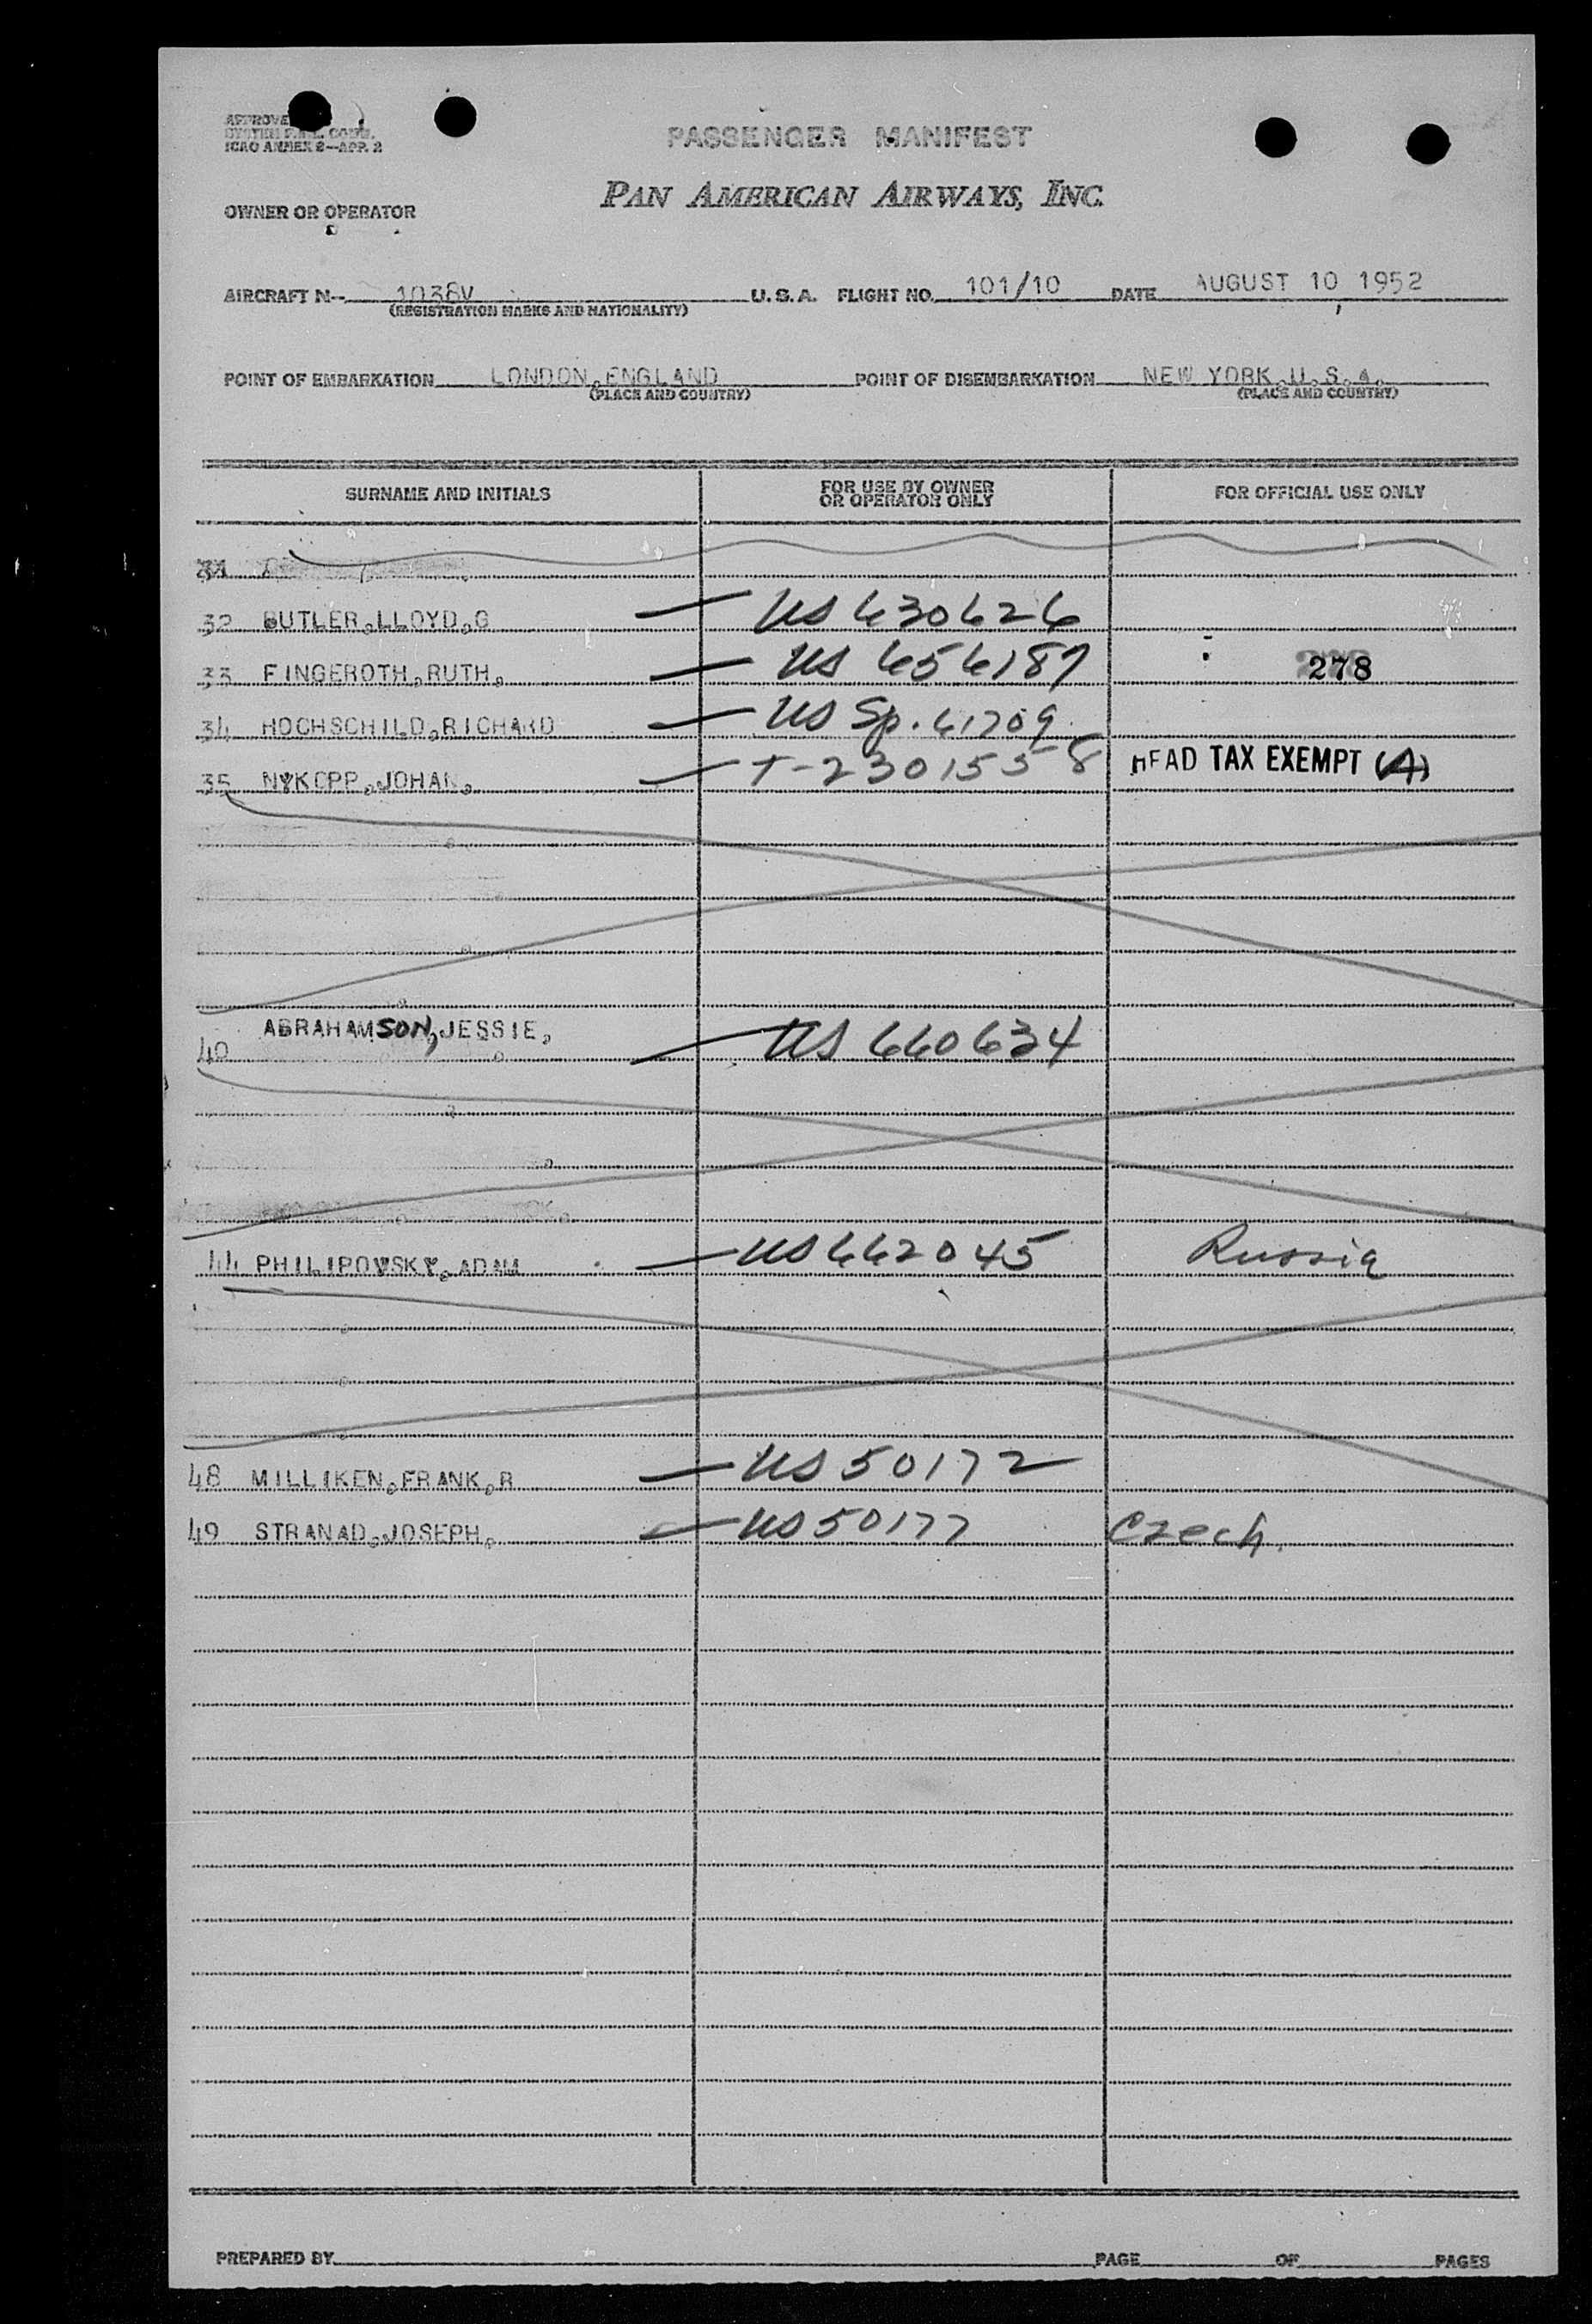 PASSENGER MANIFEST
SYSTEM
ICAO ANNEX 2—APP. 2
PAN AMERICAN AIRWAYS, INC.
OWNER OR OPERATOR
AIRCRAFT N-- 1038V U.S.A. FLIGHT NO. 101/10 DATE AUGUST 10 1952
(REGISTRATION MARKS AND NATIONALITY)
POINT OF EMBARKATION LONDON,ENGLAND POINT OF DISEMBARKATION NEW YORK,U.S.A.
(PLACE AND COUNTRY) (PLACE AND COUNTRY)
SURNAME AND INITIALS FOR USE BY OWNER OR OPERATOR ONLY FOR OFFICIAL USE ONLY
31
32 BUTLER,LLOYD,G — US 630626
33 FINGEROTH,RUTH, — US 656187 278
34 HOCHSCHILD,RICHARD — US Sp. 61709
35 NYKOPP,JOHAN, — T-2301558 HEAD TAX EXEMPT (A)
40 ABRAHAMSON,JESSIE, — US 660634
44 PHILIPOVSKY,ADAM — US 662045 Russia
48 MILLIKEN,FRANK,R — US 50172
49 STRANAD,JOSEPH, — US 50177 Czech.
PREPARED BY PAGE OF PAGES